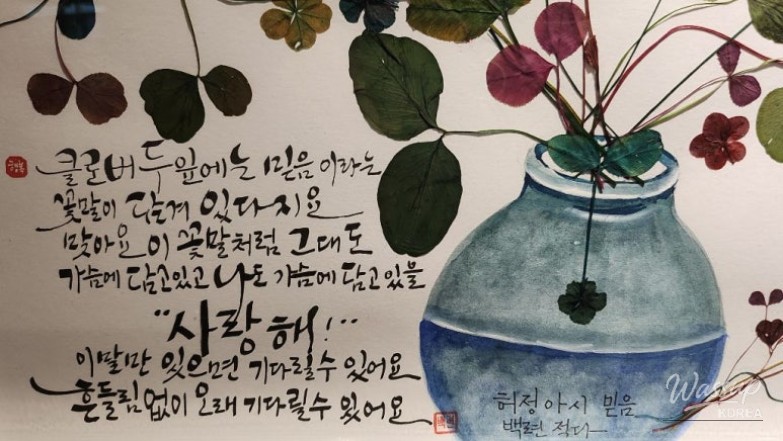 클로버 두 잎에는 믿음이라는
꽃말이 담겨 있다지요
맞아요 이 꽃말처럼 그대도
가슴에 담고있고 나도 가슴에 담고있을
"사랑해!"
이 말만 있으면 기다릴수 있어요
흔들림없이 오래 기다릴수 있어요
허정아 시 믿음
백련 적다
Wassup
KOREA